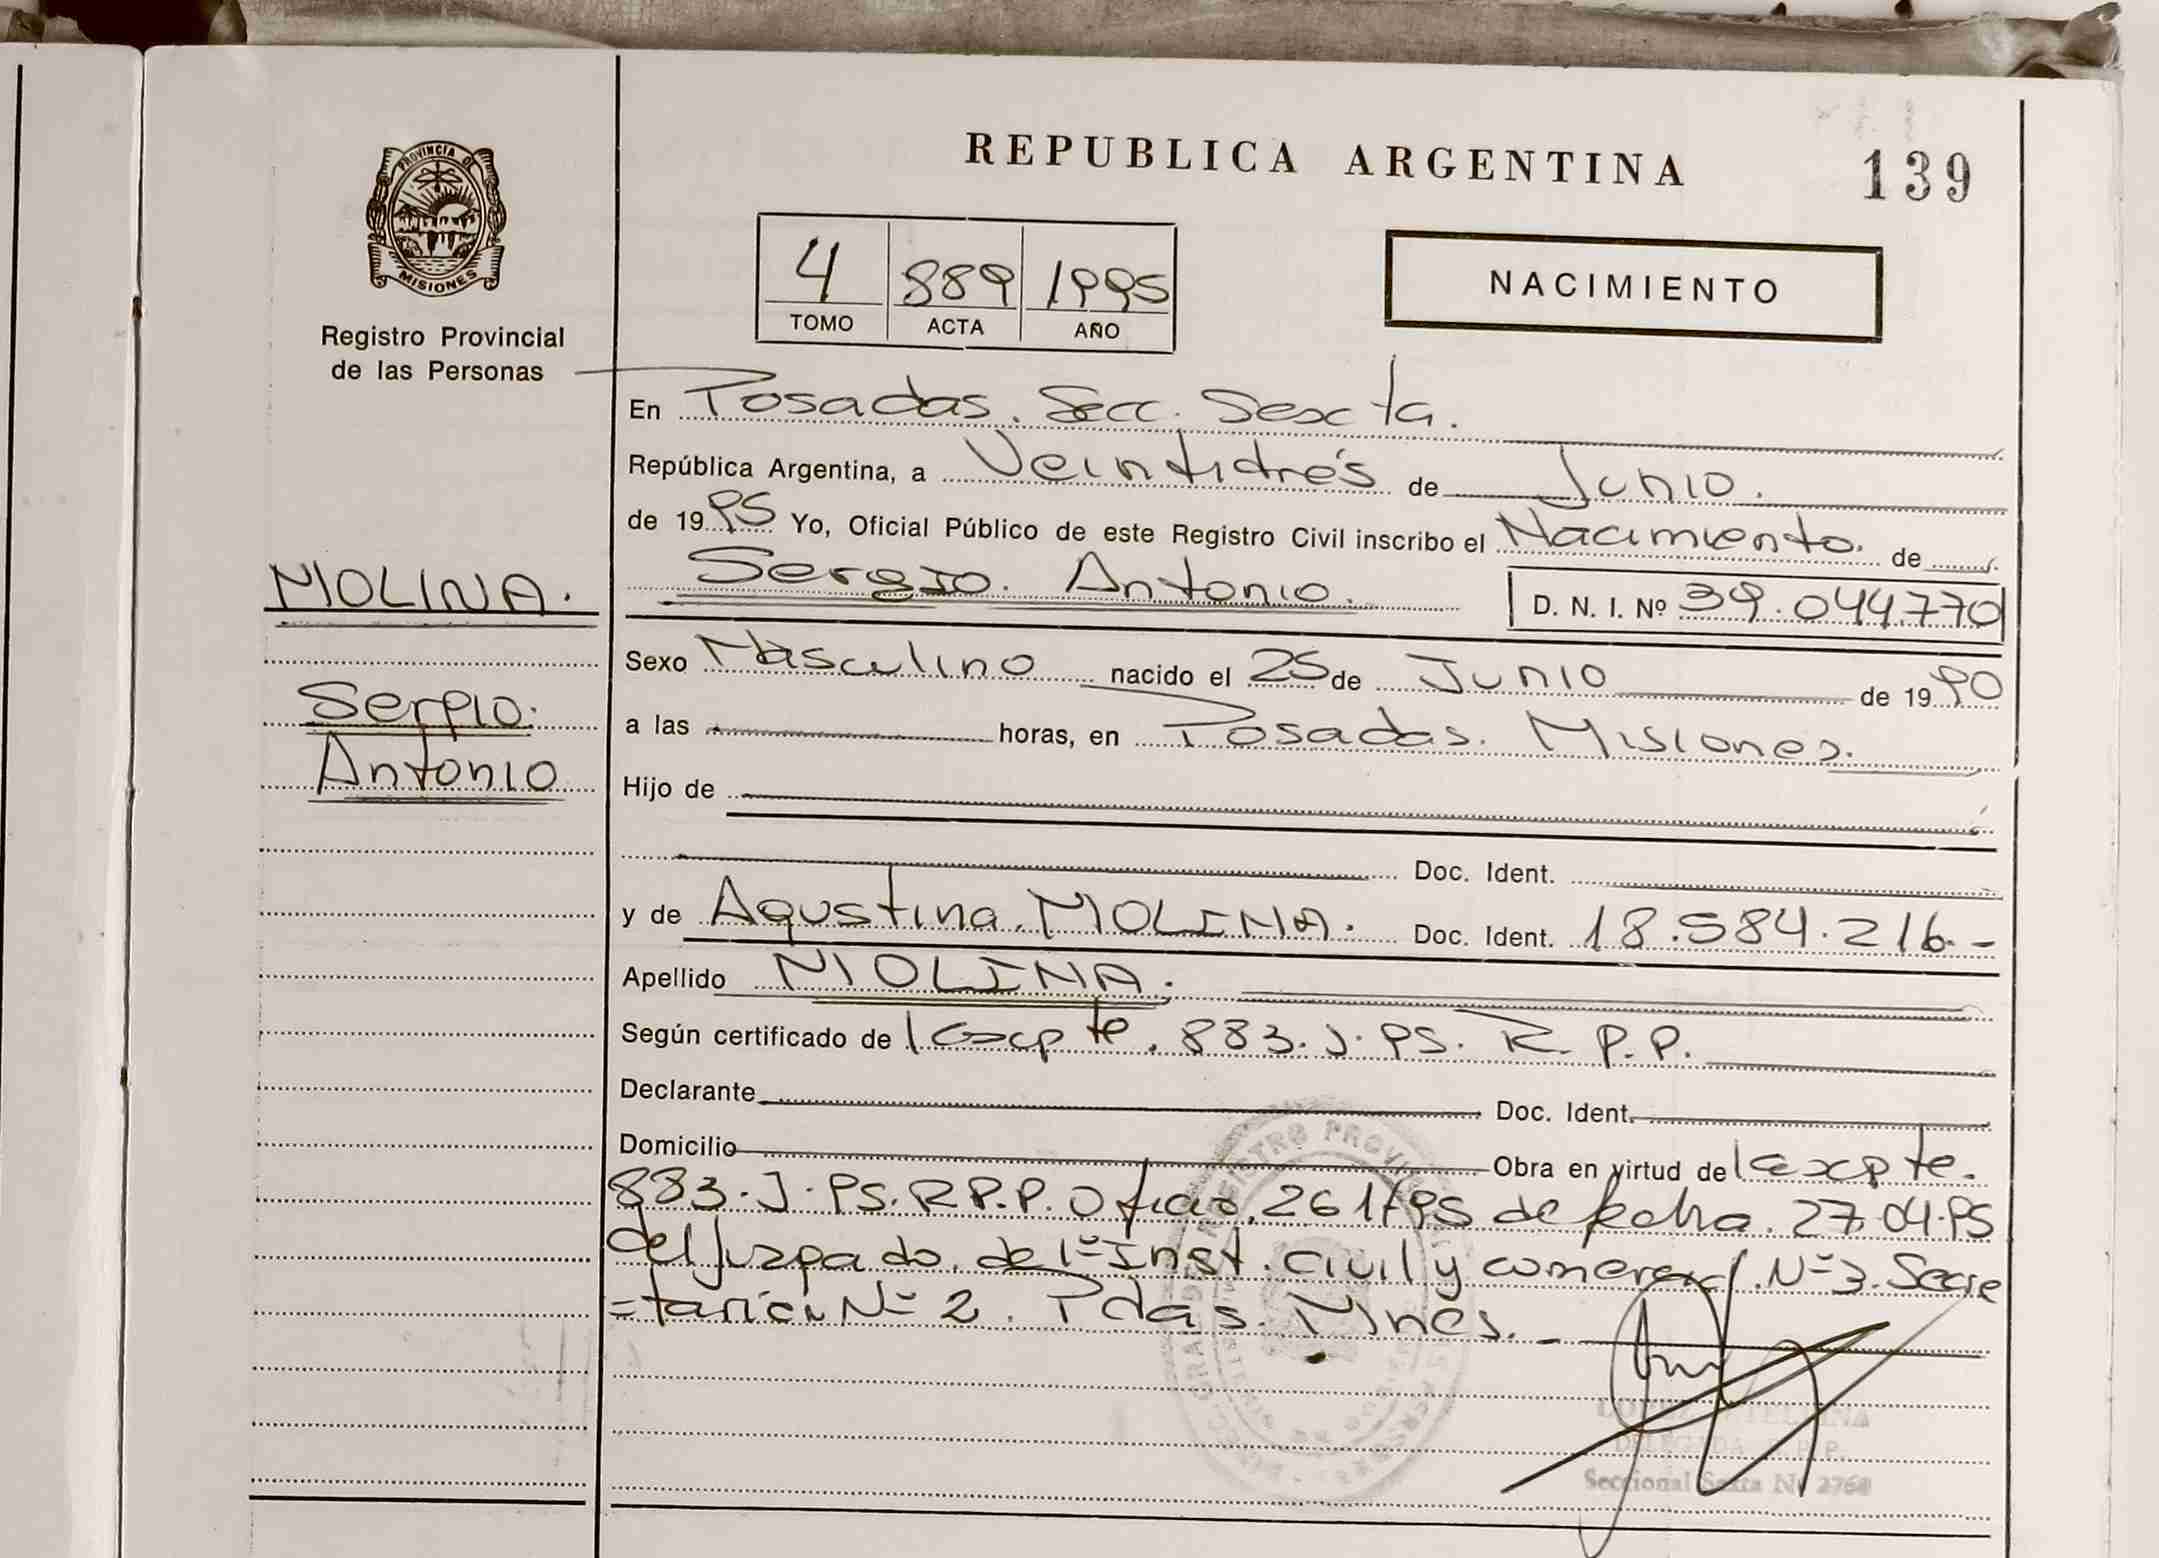 REPUBLICA ARGENTINA
139
PROVINCIA DE
MISIONES
Registro Provincial
de las Personas
4 889 1995
TOMO ACTA AÑO
NACIMIENTO
En Posadas. Secc. Sexta.
República Argentina, a Veintidrés de Junio.
de 1995 Yo, Oficial Público de este Registro Civil inscribo el Nacimiento. de
MOLINA.
Sergio. Antonio.
D. N. I. Nº 39.044.770
Sexo Masculino nacido el 25 de Junio de 1990
Sergio.
Antonio
a las horas, en Posadas. Misiones.
Hijo de
Doc. Ident.
y de Agustina. MOLINA. Doc. Ident. 18.584.216.-
Apellido MOLINA.
Según certificado de Expte. 883.J.95. R.P.P.
Declarante Doc. Ident.
Domicilio Obra en virtud de Expte.
883.J.95.R.P.P. Oficio. 261/95 de fecha. 27.04.95
del Juzgado. de 1ª Inst. civil y comercial. Nº 3. Secre
=taría Nº 2. Pdas. Mnes. -
DELEGADA R.P.P.
Seccional Sexta Nº 2768